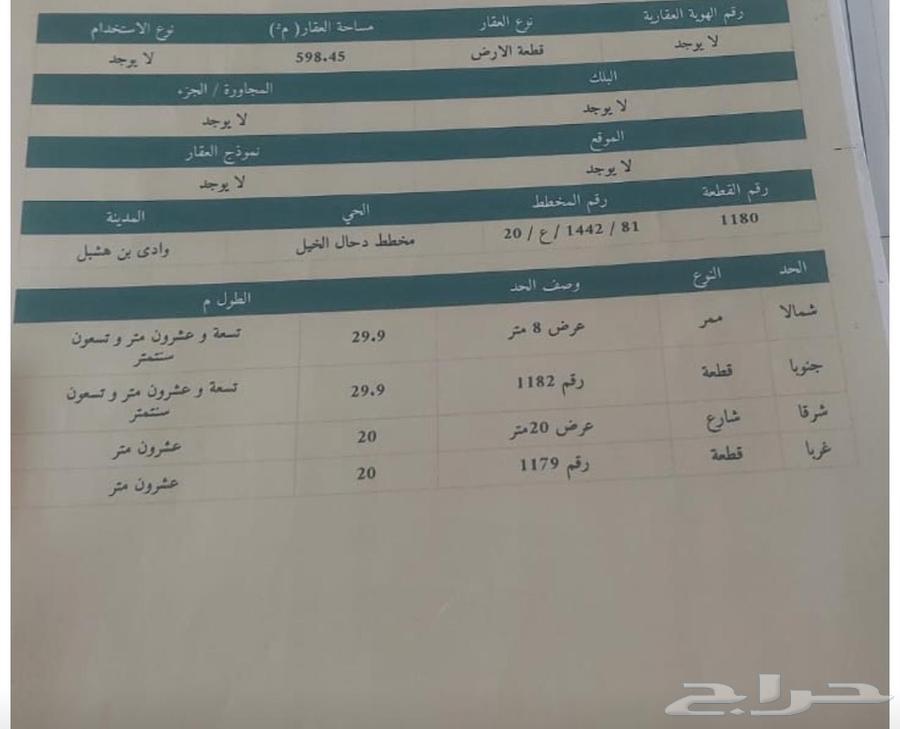 رقم الهوية العقارية نوع العقار مساحة العقار( م²) نوع الاستخدام
لا يوجد قطعة الارض 598.45 لا يوجد
البلك المجاورة / الجزء
لا يوجد لا يوجد
الموقع نموذج العقار
لا يوجد لا يوجد
رقم القطعة رقم المخطط الحي المدينة
1180 81 / 1442 / ع / 20 مخطط دحال الخيل وادى بن هشبل
الحد النوع وصف الحد الطول م
شمالا ممر عرض 8 متر 29.9 تسعة و عشرون متر و تسعون
سنتمتر
جنوبا قطعة رقم 1182 29.9 تسعة و عشرون متر و تسعون
سنتمتر
شرقا شارع عرض 20متر 20 عشرون متر
غربا قطعة رقم 1179 20 عشرون متر
حراج